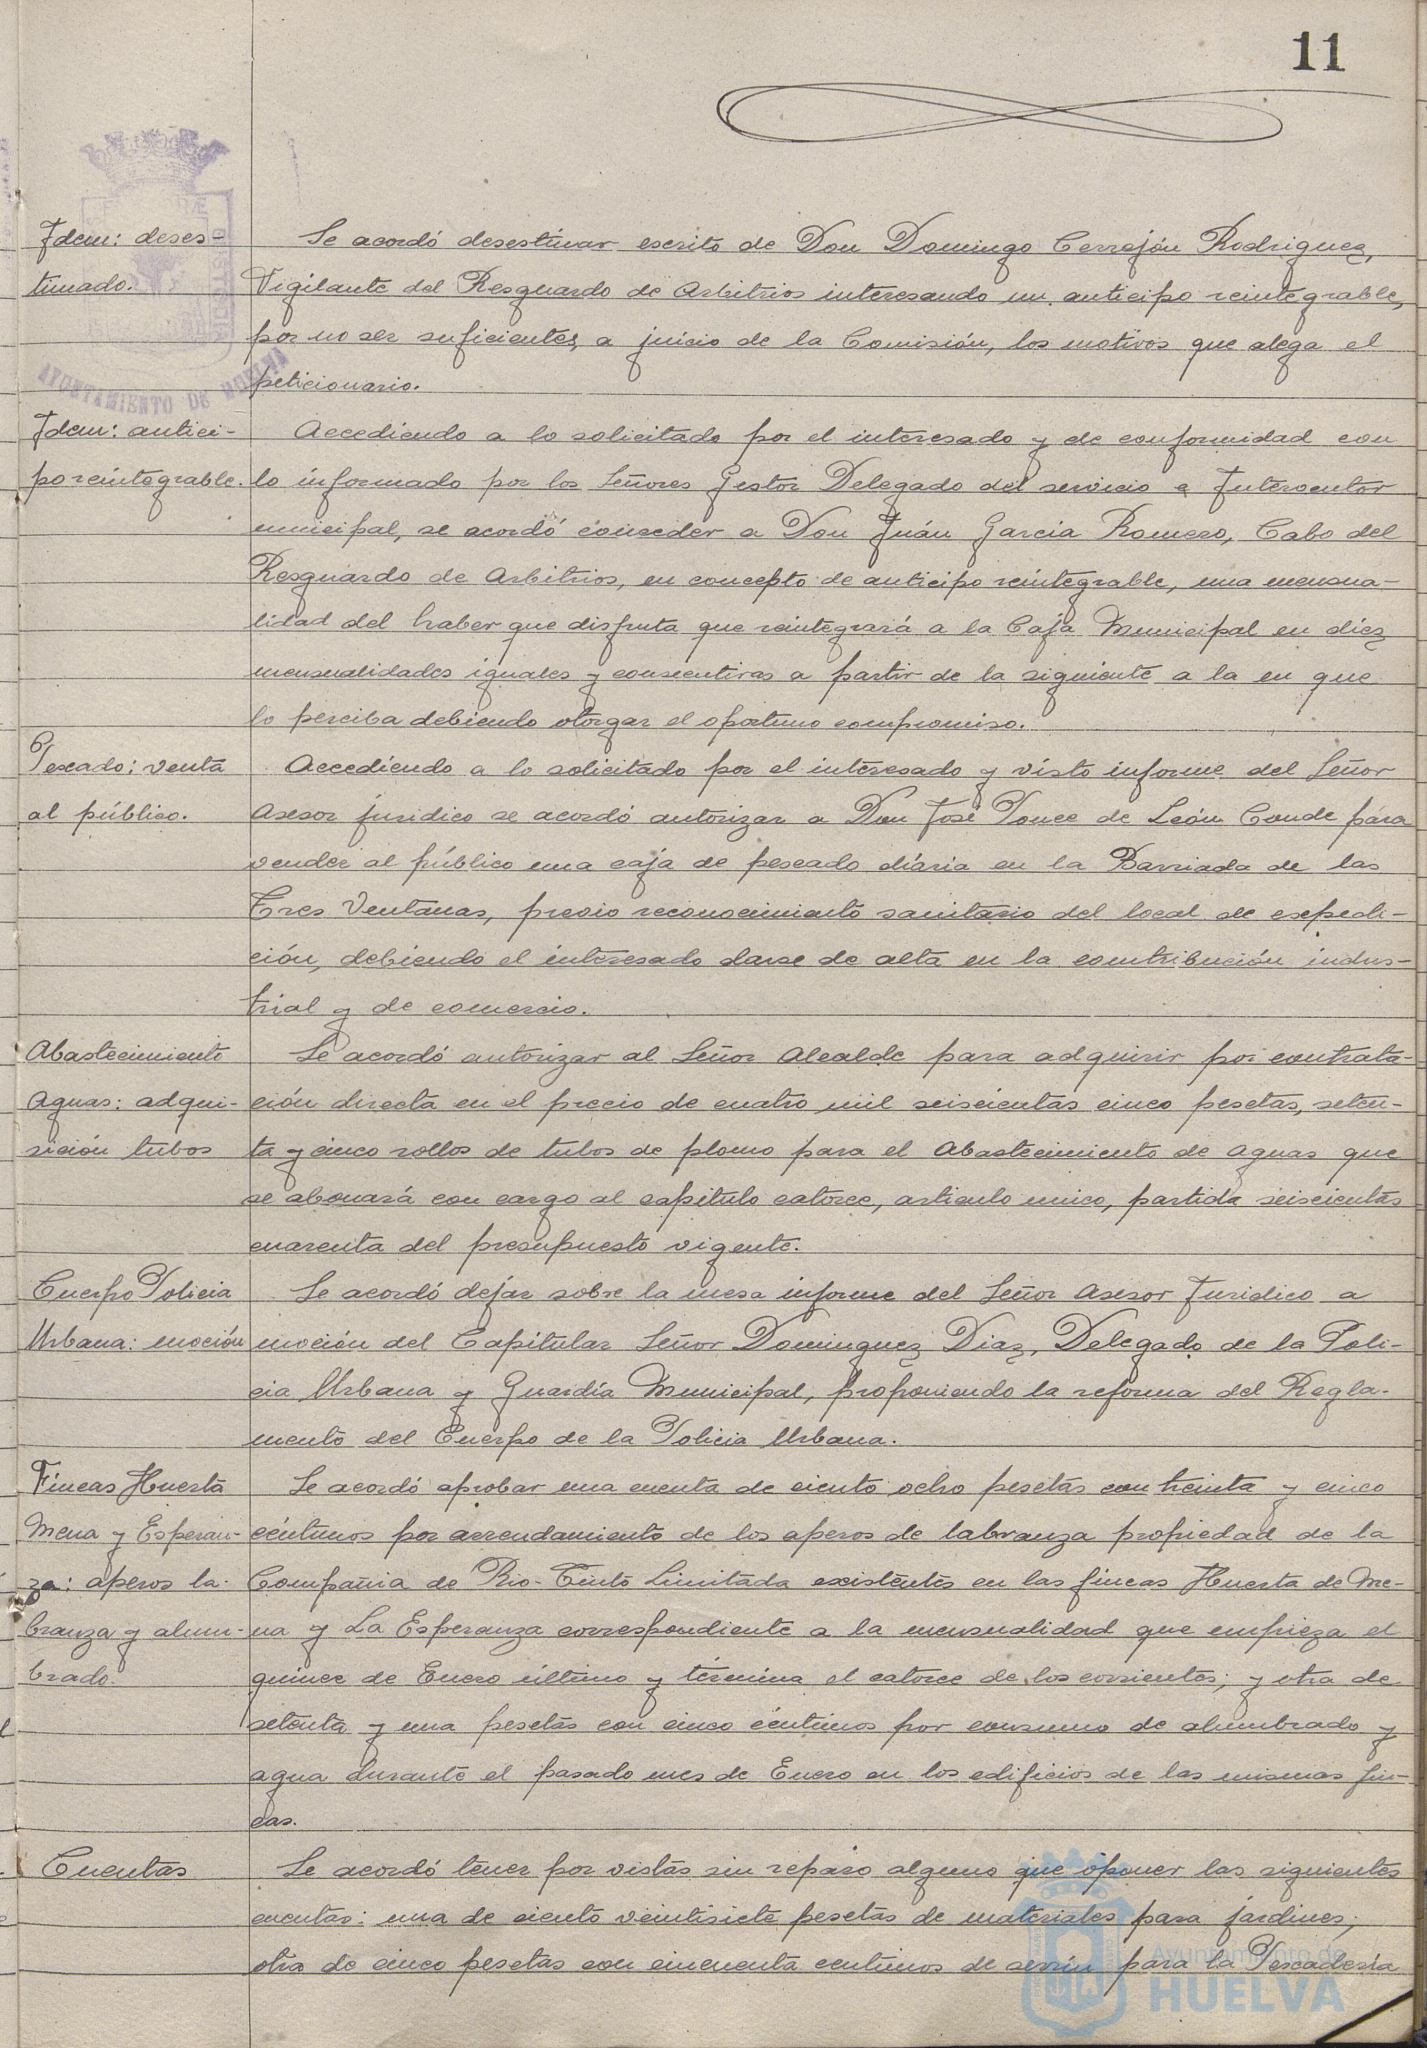 11
Idem: deses-
timado.
Se acordó desestimar escrito de Don Domingo Cerrejón Rodriguez,
Vigilante del Resguardo de Arbitrios interesando un anticipo reintegrable,
por no ser suficientes, a juicio de la Comisión, los motivos que alega el
peticionario.
AYUNTAMIENTO DE HUELVA
Idem: antici-
po reintegrable.
Accediendo a lo solicitado por el interesado y de conformidad con
lo informado por los Señores Gestor Delegado del servicio e Interventor
municipal, se acordó conceder a Don Juán Garcia Romero, Cabo del
Resguardo de Arbitrios, en concepto de anticipo reintegrable, una mensua-
lidad del haber que disfruta que reintegrará a la Caja Municipal en diez
mensualidades iguales y consecutivas a partir de la siguiente a la en que
lo perciba debiendo otorgar el oportuno compromiso.
Pescado: venta
al público.
Accediendo a lo solicitado por el interesado y visto informe del Señor
Asesor juridico se acordó autorizar a Don José Ponce de León Conde para
vender al público una caja de pescado diaria en la Barriada de las
Tres Ventanas, previo reconocimiento sanitario del local de expedi-
ción, debiendo el interesado darse de alta en la contribución indus-
trial y de comercio.
Abastecimiento
Aguas: adqui-
sición tubos
Se acordó autorizar al Señor Alcalde para adquirir por contrata-
ción directa en el precio de cuatro mil seiscientas cinco pesetas, seten-
ta y cinco rollos de tubos de plomo para el Abastecimiento de Aguas que
se abonará con cargo al capitulo catorce, articulo unico, partida seiscientas
cuarenta del presupuesto vigente.
Cuerpo Policia
Urbana: moción
Se acordó dejar sobre la mesa informe del Señor Asesor Juridico a
moción del Capitular Señor Dominguez Diaz, Delegado de la Poli-
cia Urbana y Guardia Municipal, proponiendo la reforma del Regla-
mento del Cuerpo de la Policia Urbana.
Fincas Huerta
Mena y Esperan-
za: aperos la-
branza y alum-
brado.
Se acordó aprobar una cuenta de ciento ocho pesetas con treinta y cinco
céntimos por arrendamiento de los aperos de labranza propiedad de la
Compañia de Rio-Tinto Limitada existentes en las fincas Huerta de Me-
na y La Esperanza correspondiente a la mensualidad que empieza el
quince de Enero último y termina el catorce de los corrientes; y otra de
setenta y una pesetas con cinco céntimos por consumo de alumbrado y
agua durante el pasado mes de Enero en los edificios de las mismas fin-
cas.
Cuentas
Se acordó tener por vistas sin reparo alguno que oponer las siguientes
cuentas: una de ciento veintisiete pesetas de materiales para jardines;
otra de cinco pesetas con cincuenta centimos de serrín para la Pescadería
Ayuntamiento de
HUELVA